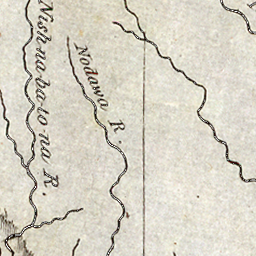 Nish-na-ba-to-na R.
Nodawa R.